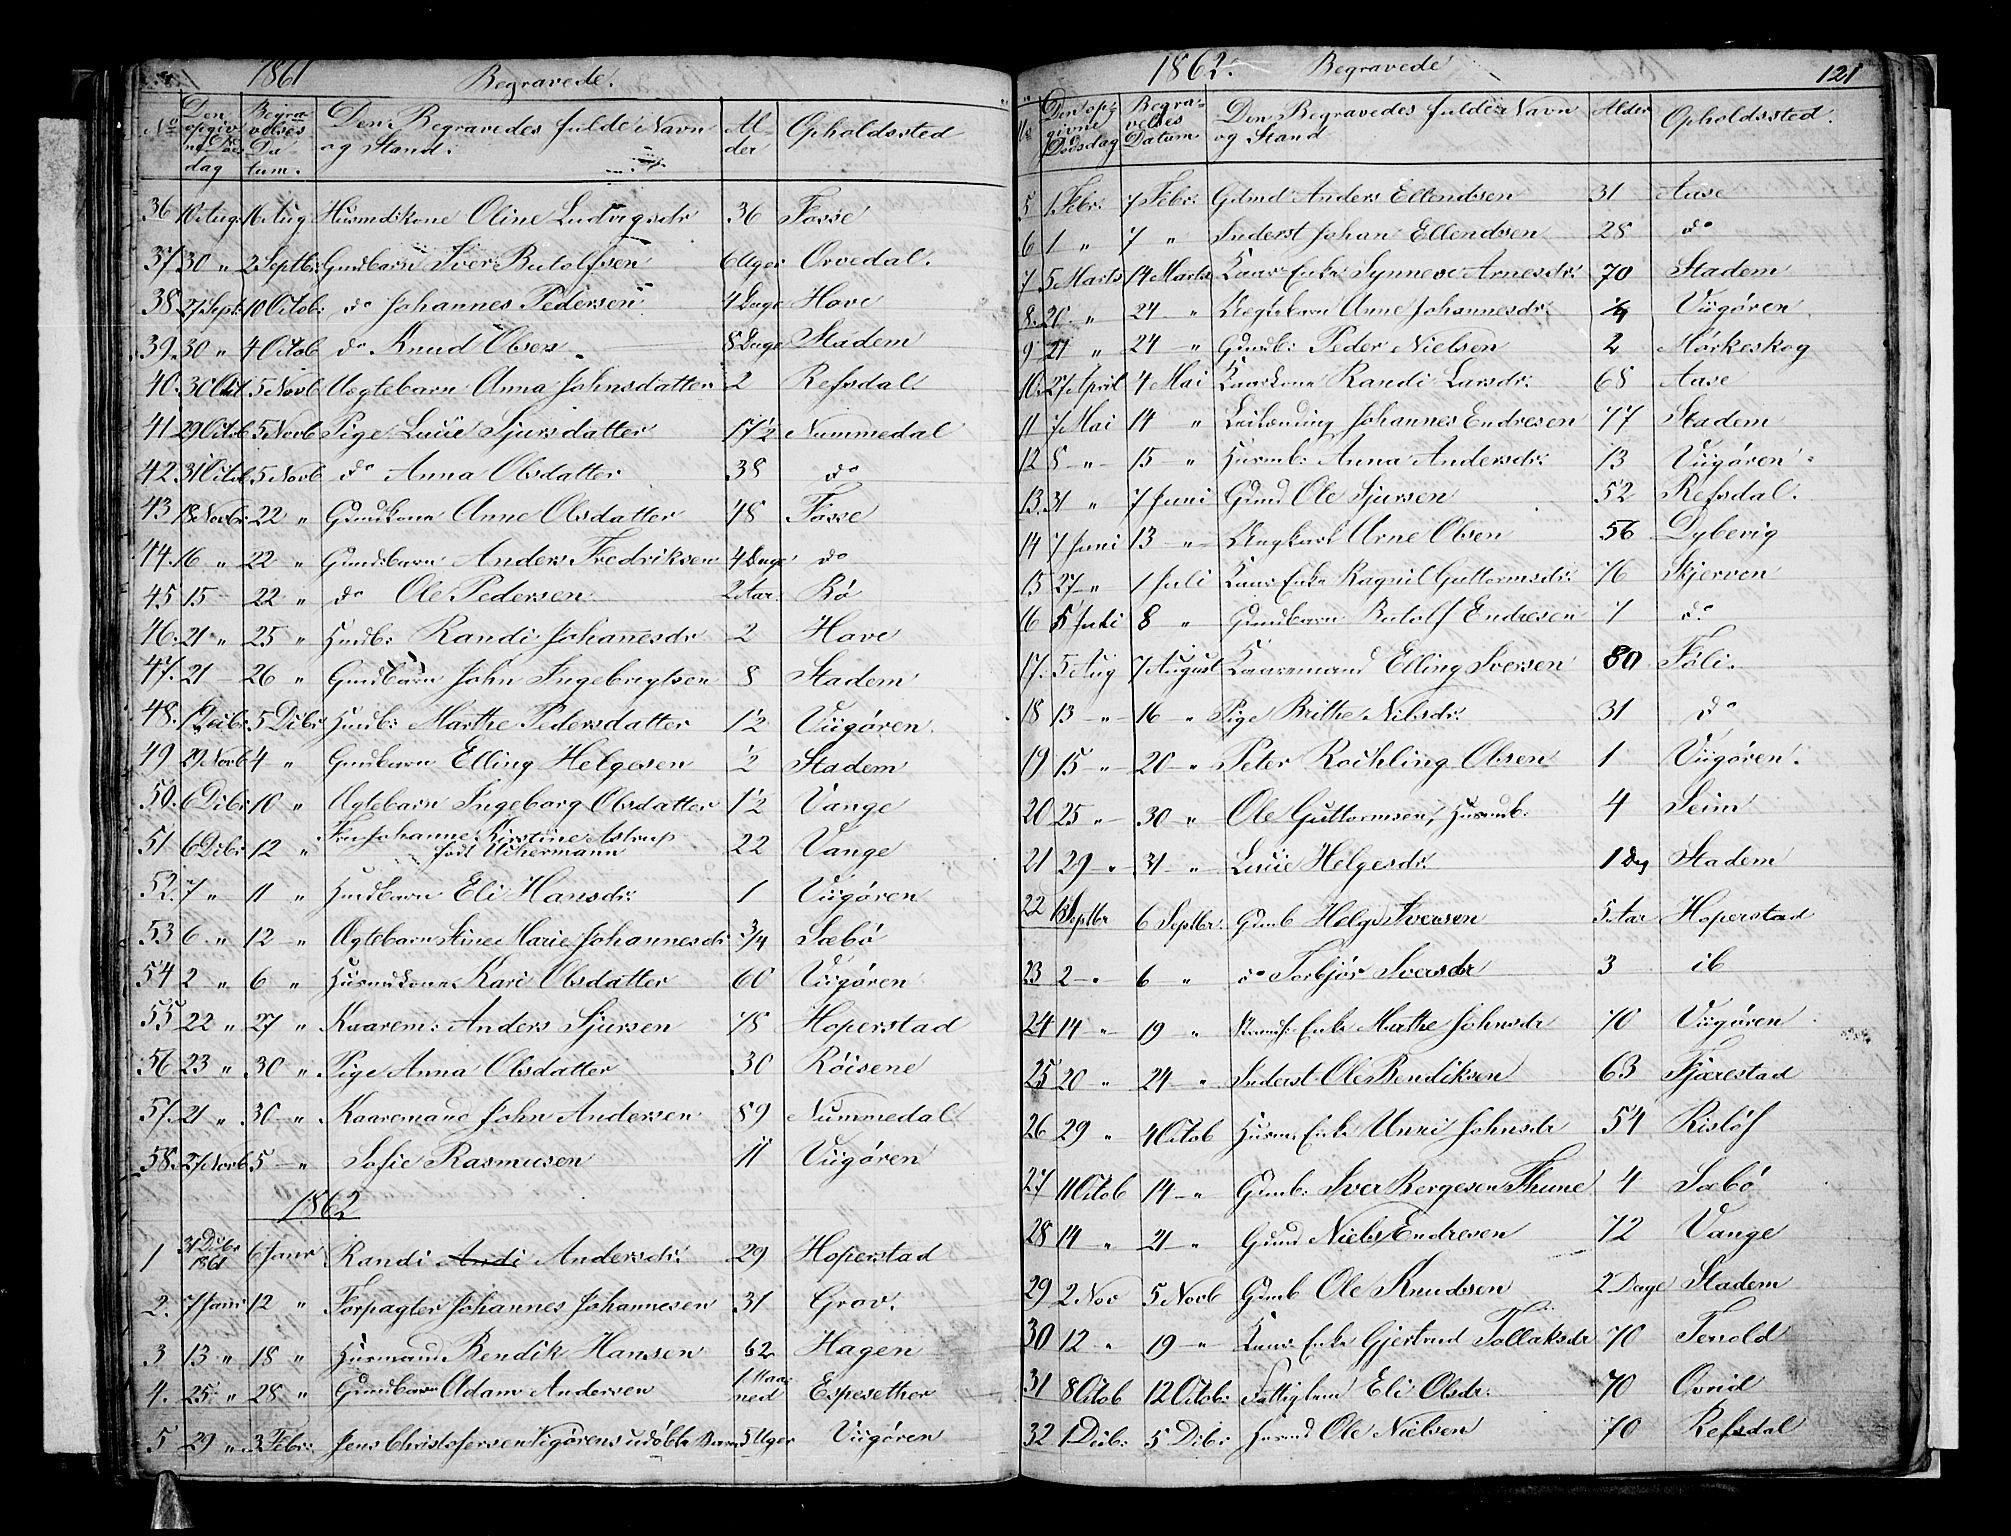 1861 Begravede.
No Den opgivne Døds dag Begravelses Datum. Den Begravedes fulde Navn og Stand. Alder Opholdssted
36 10 Aug. 16 Aug Husmdskone Oline Ludvigsdr 36 Fosse
37 30 " 2 Septbr Gmdbarn Iver Butolfsen 6 Uger Orvedal.
38 27 Sept. 10 Octob: do Johannes Pedersen 4 Dage Hove
39. 30 " 4 Octob do Knud Olsen 8 Dage Stadem
40. 30 Oct. 5 Novb Uegtebarn Anna Johnsdatter 2 Refsdal
41 29 Octob 5 Novb Pige Lucie Sjursdatter 17½ Nummedal
42. 31 Octob 5 Novb do Anna Olsdatter 38 do
43 18 Novb: 22 " Gmdkone Anne Olsdatter 48 Fosse
44. 16 " 22 " Gmdsbarn Anders Fredriksen 4 Dage do
45 15 22 " do Ole Pedersen 2 Aar. Bö
46. 21 " 25 " Husmdb: Randi Johanesdr 2 Hove
47. 21 26 " Gmdbarn John Ingebrigtsen 8 Stadem
48. 1 Decbr. 5 Dcbr Husmdb: Marthe Pedersdatter 1½ Viigören.
49 29 Novb 4 " Gmdbarn Elling Helgesen ½ Stadem
50. 6 Dcbr 10 " Ægtebarn Ingeborg Olsdatter 1½ Vange
51 6 Dcbr 12 " Fru Johanne Kirstine Astrup født Uchermann 22 Vange
52. 7 " 11 " Husmdbarn Eli Hansdr: 1 Viigören
53 6 " 12 " Ægtebarn Stine Marie Johannesdr ¾ Sæbö
54 2 " 6 " Husmdkone Kari Olsdatter 60 Viigören
55 22 " 27 " Kaarem: Anders Sjursen 78 Hoperstad
56 23 " 30 " Pige Anna Olsdatter 30 Röisene
57. 21 " 30 " Kaaremand John Andersen 89 Nummedal
58. 27 Novb 5 " Sofie Rasmusen 11 Viigören
1862
1 31 Dcbr 1861 6 Janr Randi Andi Andersdr: 29 Hoperstad
2. 7 Janr 12 " Forpagter Johannes Johannesen 31 Grov.
3 13 " 18 " Husmand Bendik Hansen 62 Hagen
4. 25 " 28 " Gmdbarn Adam Andersen 1 Maaned Espesether
5 29 " 3 Febr: Jens Christofersen Vigörens udöbte Barn 5 Uger Viigören
1862. Begravede 121
No Den opgivne Dødsdag Begravelses Datum. Den Begravedes fulde Navn og Stand Alder Opholdssted.
5 1 Febr: 7 Febr: Gdmd Anders Ellendsen 31 Aase
6 1 " 7 " Inderst Johan Ellendsen 28 do
7 5 Marts 14 Marts Kaar Enke Synneve Arnesdr: 70 Stadem
8. 20 " 24 " Uegtebarn Anne Johannesdr. ¼ Viigören
9 21 " 24 " Gmdb: Peder Nielsen 2 Mörkeskog
10. 27 April 4 Mai Kaarkone Randi Larsdr: 68 Aase
11 7 Mai 14 " Leilænding Johannes Endresen 77 Stadem
12 8 " 15 " Husmb: Anna Andersdr: 13 Viigören
13. 31 " 7 Juni Gmd Ole Sjursen 52 Refsdal.
14 7 Juni 13 " Ungkarl Arne Olsen 56 Dybevig
15 27 " 1 Juli Kaar Enke Ragnil Guttormsdr. 76 Skjerven
16 5 Juli 8 " Gmdbarn Butolf Endresen 7 do
17. 5 Aug 7 August Kaaremand Elling Iversen 80 Föli.
18 13 " 16 " Pige Brithe Nilsdr. 31 do
19 15 " 20 " Peter Rochling Olsen 1 Viigören.
20 25 " 30 " Ole Guttormsen, Husmdb. 4 Seim
21 29 " 31 " Lucie Helgesdr. 1 Dag Stadem
22 1 Septbr 6 Septbr. Gmb Helge Iversen 5 Aar Hoperstad
23 2 " 6 " do Torbjör Iversdr 3 ib
24 14 " 19 " Enke Marthe Johnsdr 70 Viigören
25 20 " 24 " Inderst Ole Bendiksen 63 Fjærestad
26 29 " 4 Octob Husm: Enke Unni Johnsdr 54 Rislöf
27 11 Octob 14 " Gmb: Iver Börgesen Thune 4 Sæbö
28 14 " 21 " Gmd Niels Endresen 72 Vange
29 2 Nov 5 Novb Gmb Ole Knudsen 2 Dage Stadem
30 12 " 19 " Kaar Enke Gjertrud Tollaksdr 70 Tenold
31 8 Octob 12 Octob: Fattiglem Eli Olsdr. 70 Ovrid
32 1 Dcb: 5 Dcbr Husmd Ole Nielsen 70 Refsdal